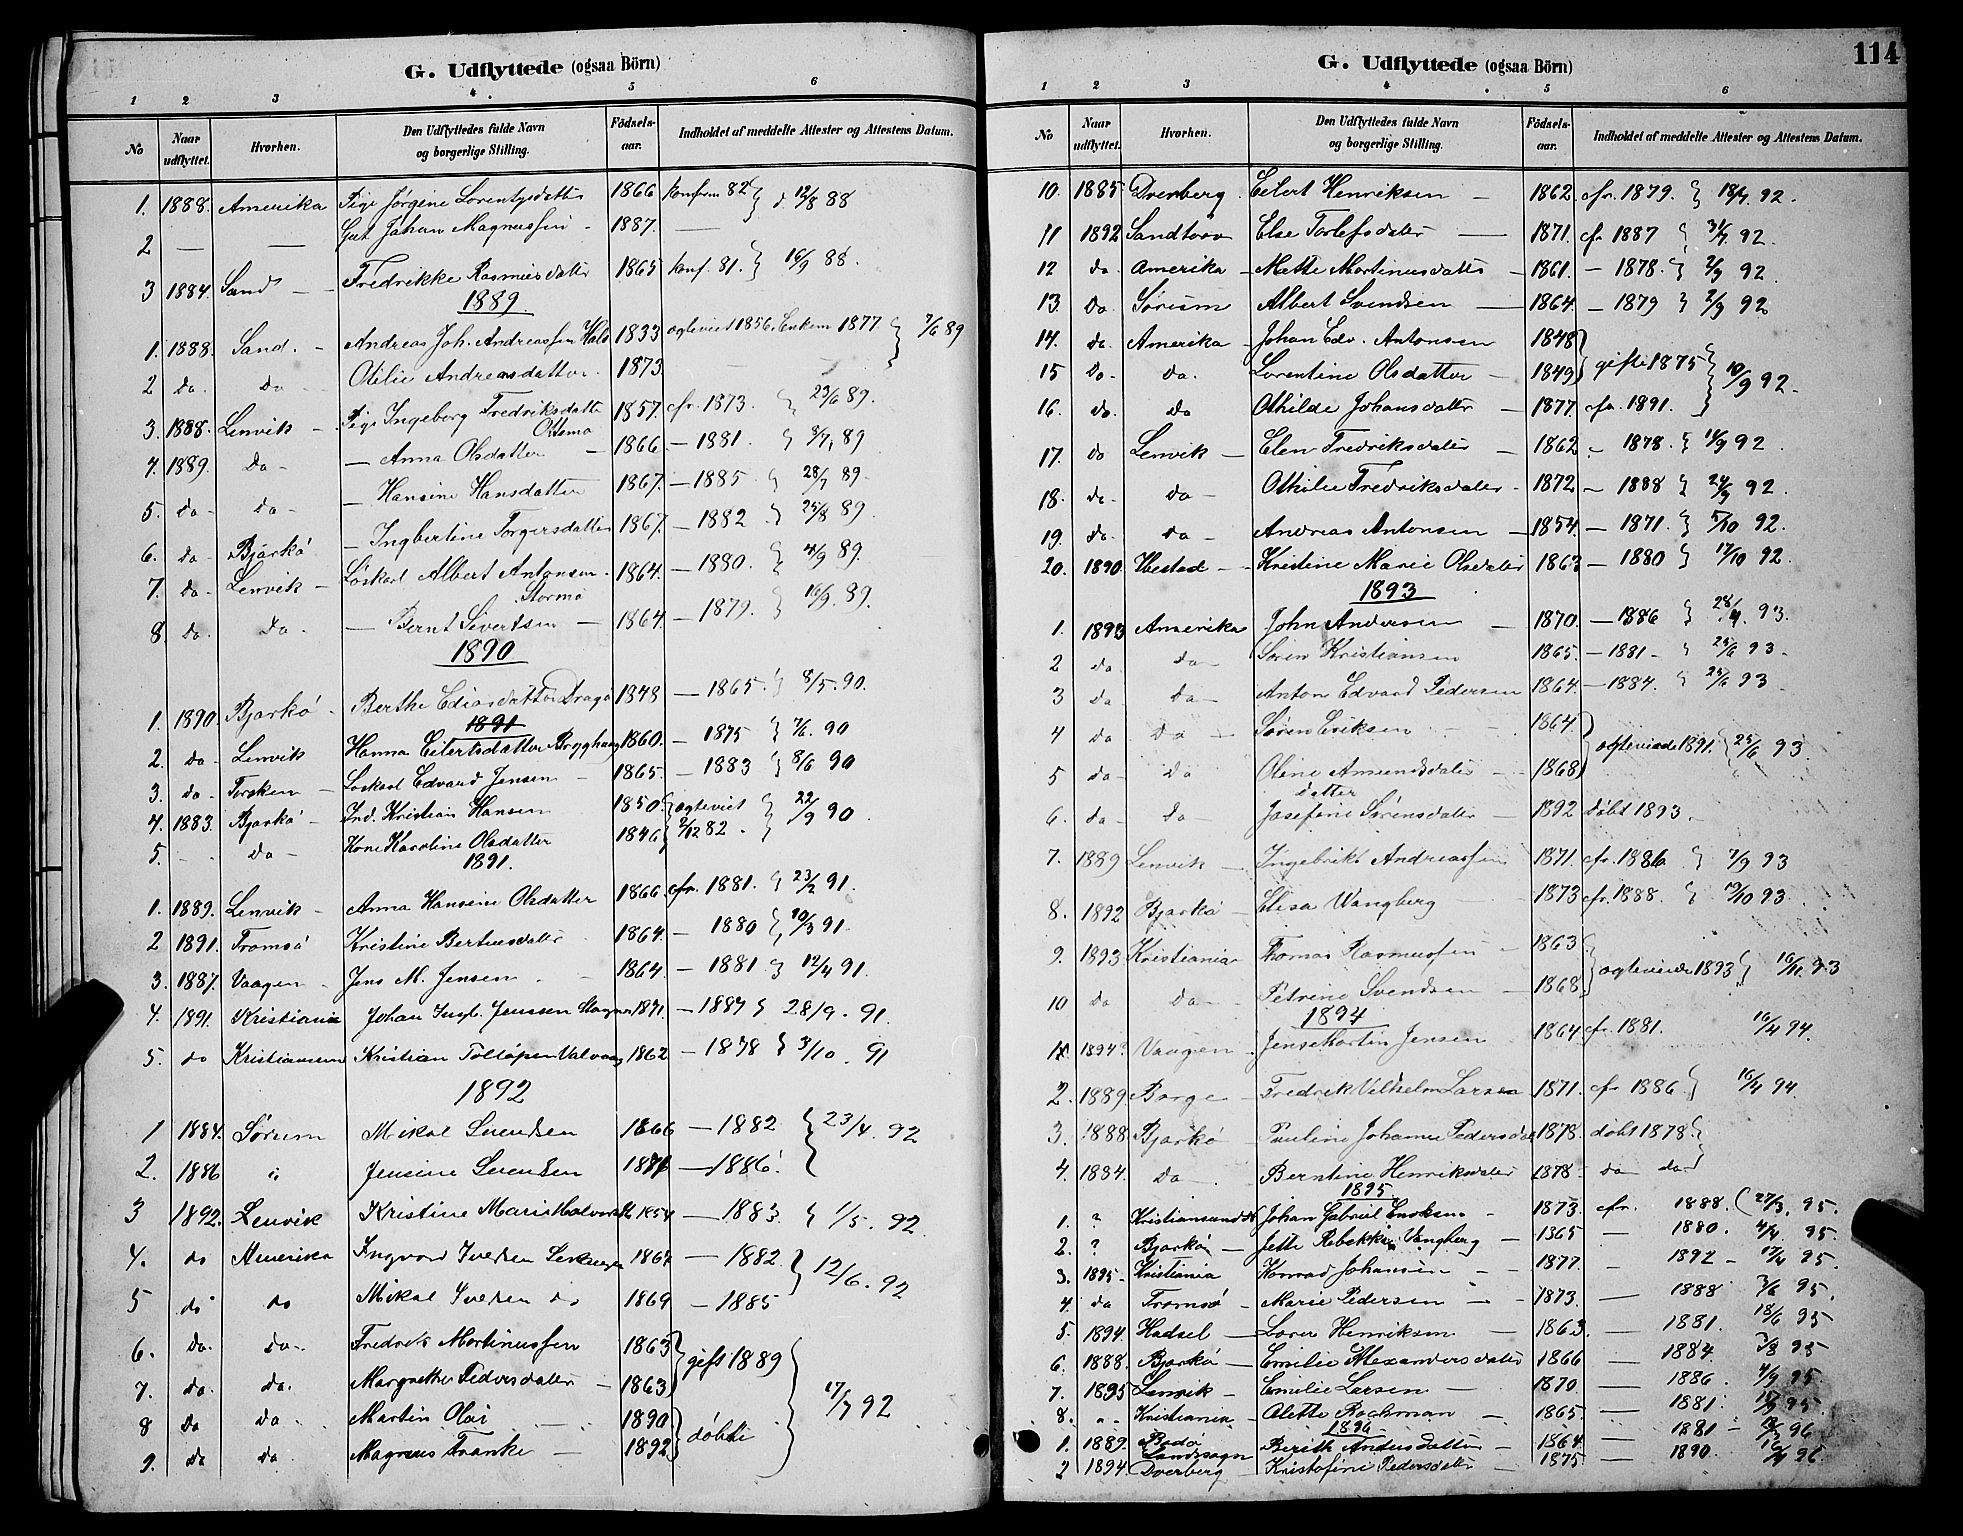 G. Udflyttede (ogsaa Börn)
1 2 3 4 5 6
No Naar udflyttet. Hvorhen. Den Udflyttedes fulde Navn og borgerlige Stilling. Födsels-aar. Indholdet af meddelte Attester og Attestens Datum.
1. 1888. Amerika Pige Jørgine Lorentsdatter 1866 konfirm 82 } d 12/8 88
2 — — Gut Johan Magnussen - 1887. —
3 1884. Sand - Fredrikke Rasmusdatter 1865 konf. 81. } 16/9 88.
1889.
1. 1888. Sand. - Andreas Joh. Andreassen 1833 egteviet 1856. Enkem 1877. } 7/6 89
2 do. do - Otilie Andreasdatter. 1873
3. 1888. Lenvik - Pige Ingeborg Fredriksdatter 1857. cfr. 1873. } 23/6 89.
4. 1889. do - — Anna Olsdatter - 1866 — 1881. } 8/7. 89
5. do - do - — Hansine Hansdatter 1867. — 1885 } 28/7 89.
6. do - Bjarkö - — Ingbertine Torgersdatter 1867. — 1882. } 25/8 89.
7. do - Lenvik - Löskarl Albert Antonsen. 1864. — 1880. } 4/9 89.
8 do. do. — Bernt Sivertsen — 1864. — 1879. } 16/9. 89.
1890
1. 1890. Bjarkö. Berthe 1848 — 1865. } 8/5. 90.
1891
2. do - Lenvik Hanna Eilertsdatter 1860. — 1875 } 7/6. 90
3. do - Torsken — Löskarl Edvard Jensen — 1865. — 1883 } 8/6 90
4. 1883. Bjarkö - Ind. Kristian Hansen 1850 { egteviet } 22/9 90
5. - do - Kone Karoline Olsdatter 1846 { 2/12 82.
1891.
1. 1889. Lenvik - Anna Hansine Olsdatter 1866. cfr. 1881. } 23/2 91.
2 1891. Tromsö Kristine Berteusdatter 1864. — 1880 } 10/3 91.
3. 1887. Vaagen - Jens M. Jensen - 1864. — 1881 } 12/4 91.
4. 1891. Kristiania Johan Ingb. Jenssen 1871. — 1887 } 28/9. 91.
5. do Kristian 1862 — 1878 } 3/10. 91
1892
1 1884. Sørum Mikal Svendsen 1866 — 1882 } 23/4. 92
2. 1886 " Jensine Svendsen — 1886.
3 1892. Lenvik Kristine Marie — 1883. } 1/5. 92.
4. do Amerika Ingvard Iversen 1864 — 1882. } 12/6. 92
5 do do Mikal Iversen do 1869 — 1885
6. do. do - Fredrik Martinussen 1863 } gift 1889
7. do. do. Margrethe Pedersdatter — 1863 } 17/7 92
8 do do - Martin Olai — 1890 } döbte
9. do do. Magnus Franke — 1892
G. Udflyttede (ogsaa Börn) 114
1 2 3 4 5 6
No Naar udflyttet. Hvorhen. Den Udflyttedes fulde Navn og borgerlige Stilling. Födsels-aar. Indholdet af meddelte Attester og Attestens Datum.
10. 1885 Dverberg. Eilert Henriksen — 1862. cfr. 1879. } 18/7. 92.
11 1892 Sandtorv Else Torlefsdatter — 1871. cfr 1887 } 31/7. 92.
12 do. Amerika - Mette Martinusdatter — 1861. — 1878. } 2/9 92.
13. do Sørum Albert Svendsen — 1864. — 1879 } 2/9 92
14. do Amerika - Johan Edv. Antonsen 1848
15 do - do. Lorentine Olsdatter — 1849 } gifte 1875 } 10/9 92.
16. do. do Othilde Johansdatter — 1877. cfr. 1891.
17. do Lenvik — Elen Fredriksdatter — 1862. — 1878. } 11/9 92.
18. do - do - Othilie Fredriksdatter - 1872 — 1888 } 24/9 92.
19. do - do - Andreas Antonsen — 1854. — 1871. } 5/10 92.
20. 1890 Ibestad - Kristine Marie Olsdatter 1863 — 1880 } 17/10 92.
1893
1. 1893 Amerika John Andersen — 1870. — 1886 } 93.
2 do do - Sören Kristiansen 1865. — 1881 - } 25/6 93 -
3 do do - Anton Edvard Pedersen 1864. — 1884. } 25/6 93
4 do do - Søren Eriksen - 1864.
5 do - do Oline Amundsdatter - 1868 } egteviede 1891. } 25/6 93.
datter
6. do - do - Josefine Sørensdatter — 1892 döbt 1893.
7. 1889 Lenvik — Ingebrikt Andreassen 1871. cfr. 1886 } 7/9 93
8. 1892 Bjarkö — Elisa Wangberg — 1873 cfr. 1888. } 19/10 93
9. 1893 Kristiania Thomas Rasmussen - 1863
10 do do - Petrine Svendsen — 1868. } egteviede 1893 } 16/11. 93
1894
1. 1894? Vaagen - Jens Martin Jensen 1864 cfr. 1881. 16/4 94.
2. 1889 Borge - Fredrik Vilhelm Larsen 1871. cfr 1886 } 16/4 94.
3. 1888. Bjarkö - Pauline Johanne Pedersdat 1878. döbt 1878 }
4. 1884. do - Berntine Henriksdatter 1878 - do do
1895
1. ? Kristianssund N Johan Gabriel Enoksen - 1873. cfr. 1888. (27/3. 95.
2. ? Bjarkö — Jette Rebekka Vangberg — 1865 — 1880. 4/4. 95.
3. 1895 - Kristiania Konrad Johansen — 1877. — 1892 - 17/4 95.
4. do Tromsö - Marie Pedersen — 1873. — 1888 7/6 95.
5. 1894. Hadsel — Lorens Henriksen — 1863. — 1881. 18/6 95
6. 1888. Bjarkö — Emilie Alexandersdatter 1866 — 1884. 95
7. 1895 Lenvik — Emilie Larsen — 1870. — 1886. 4/9 95.
8. " Kristiania - Olette Bachman — 1865. — 1881. 95.
1896
1. 1889. Bodö Landsogn Berith Andersdatter - 1864. — 1881 - 96
2 1894 Dverberg — Kristofine Pedersdatter — 1875. — 1890. 96.